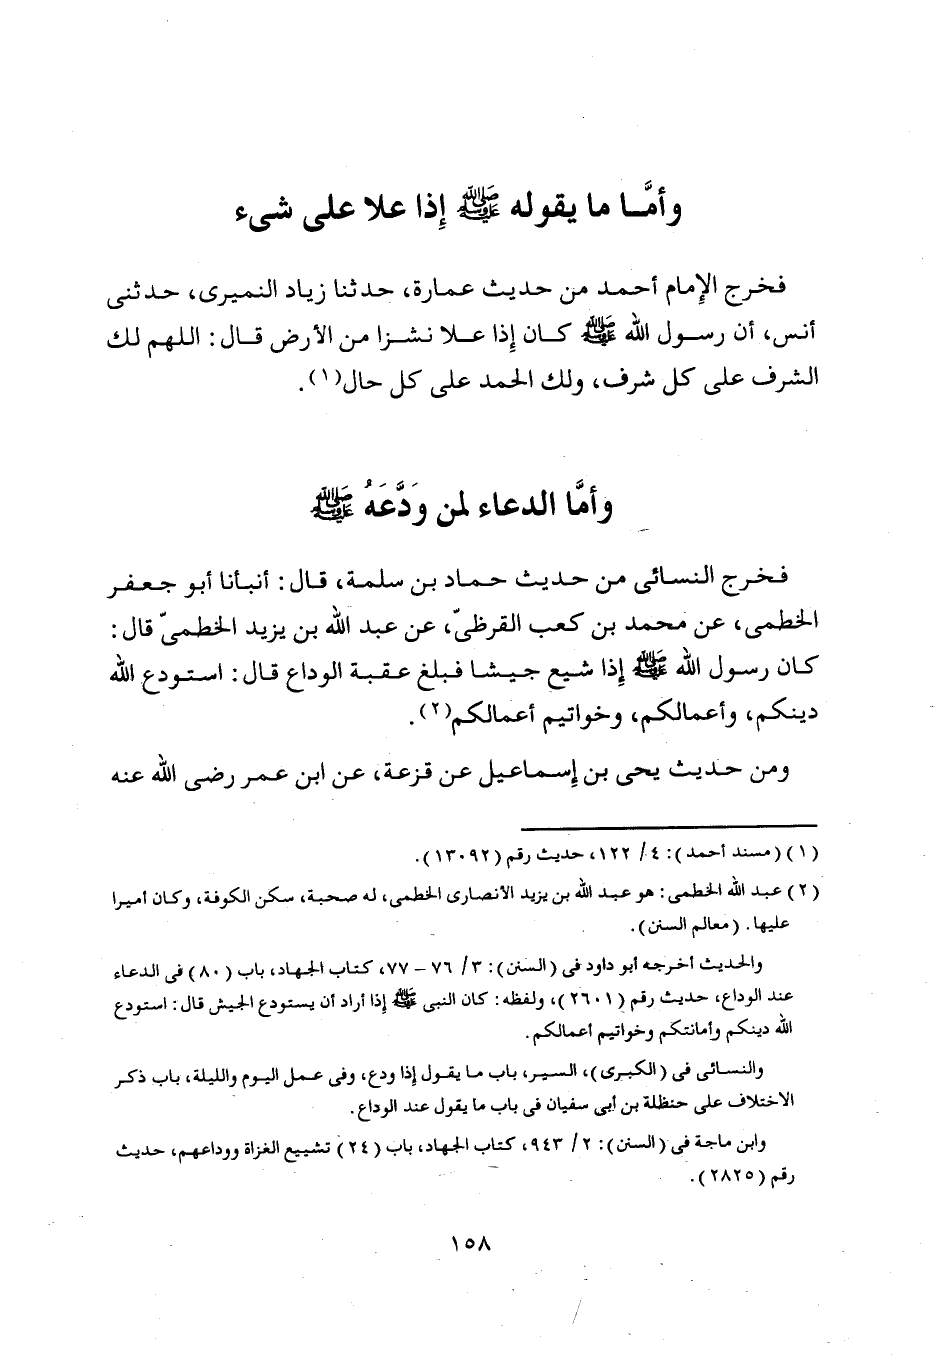 وأمَّا ما يقوله ﷺ إذا علا على شىء
فخرج الإمام أحمد من حديث عمارة، حدثنا زياد النميرى، حدثنى
أنس، أن رسول الله ﷺ كان إذا علا نشزا من الأرض قال: اللهم لك
الشرف على كل شرف، ولك الحمد على كل حال(١).
وأمَّا الدعاء لمن وَدَّعَهُ ﷺ
فخرج النسائى من حديث حماد بن سلمة، قال: أنبأنا أبو جعفر
الخطمى، عن محمد بن كعب القرظىّ، عن عبد الله بن يزيد الخطمىّ قال:
كان رسول الله ﷺ إذا شيع جيشا فبلغ عقبة الوداع قال: استودع الله
دينكم، وأعمالكم، وخواتيم أعمالكم(٢).
ومن حديث يحى بن إسماعيل عن قزعة، عن ابن عمر رضى الله عنه
(١) (مسند أحمد): ٤/ ١٢٢، حديث رقم (١٣٠٩٢).
(٢) عبد الله الخطمى: هو عبد الله بن يزيد الأنصارى الخطمى، له صحبة، سكن الكوفة، وكان أميرا
عليها. (معالم السنن).
والحديث أخرجه أبو داود فى (السنن): ٣/ ٧٦ - ٧٧، كتاب الجهاد، باب (٨٠) فى الدعاء
عند الوداع، حديث رقم (٢٦٠١)، ولفظه: كان النبى ﷺ إذا أراد أن يستودع الجيش قال: استودع
الله دينكم وأمانتكم وخواتيم أعمالكم.
والنسائى فى (الكبرى)، السير، باب ما يقول إذا ودع، وفى عمل اليوم والليلة، باب ذكر
الاختلاف على حنظلة بن أبى سفيان فى باب ما يقول عند الوداع.
وابن ماجة فى (السنن): ٢/ ٩٤٣، كتاب الجهاد، باب (٢٤) تشييع الغزاة ووداعهم، حديث
رقم (٢٨٢٥).
١٥٨